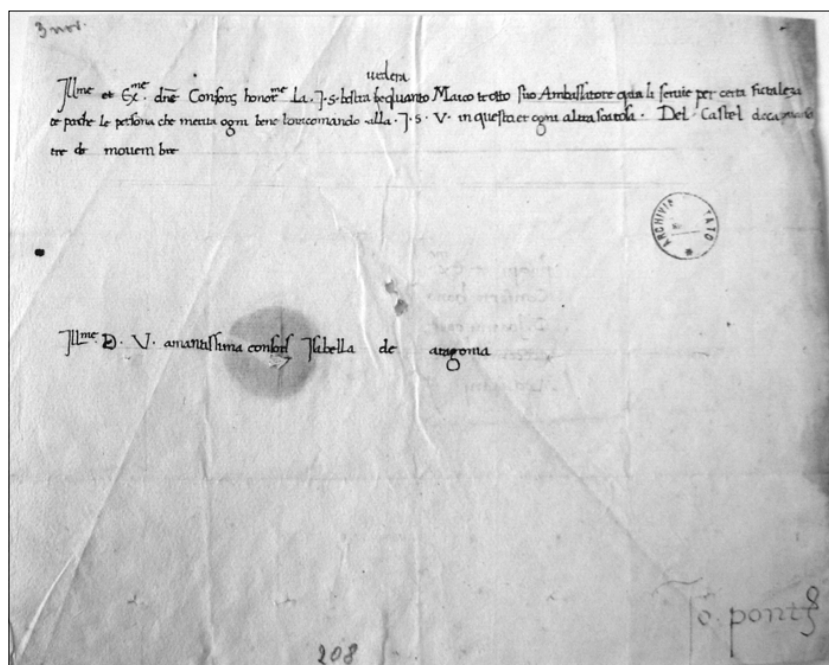 3 nov.
uedera
Jllme et Exme. dne Consors honorme La. J. s. bestra quanto Marco trotto suo Ambassatore qua li scriue per certa
te perche le persona che merita ogni bene lo ricomando alla. J. s. V. in questa et ogni altra. Del Castel
tre de nouembre
ARCHIVIO TATO
Jllme. D. V. amantissima consors Jsabella de aragonia
Jo. pont
208